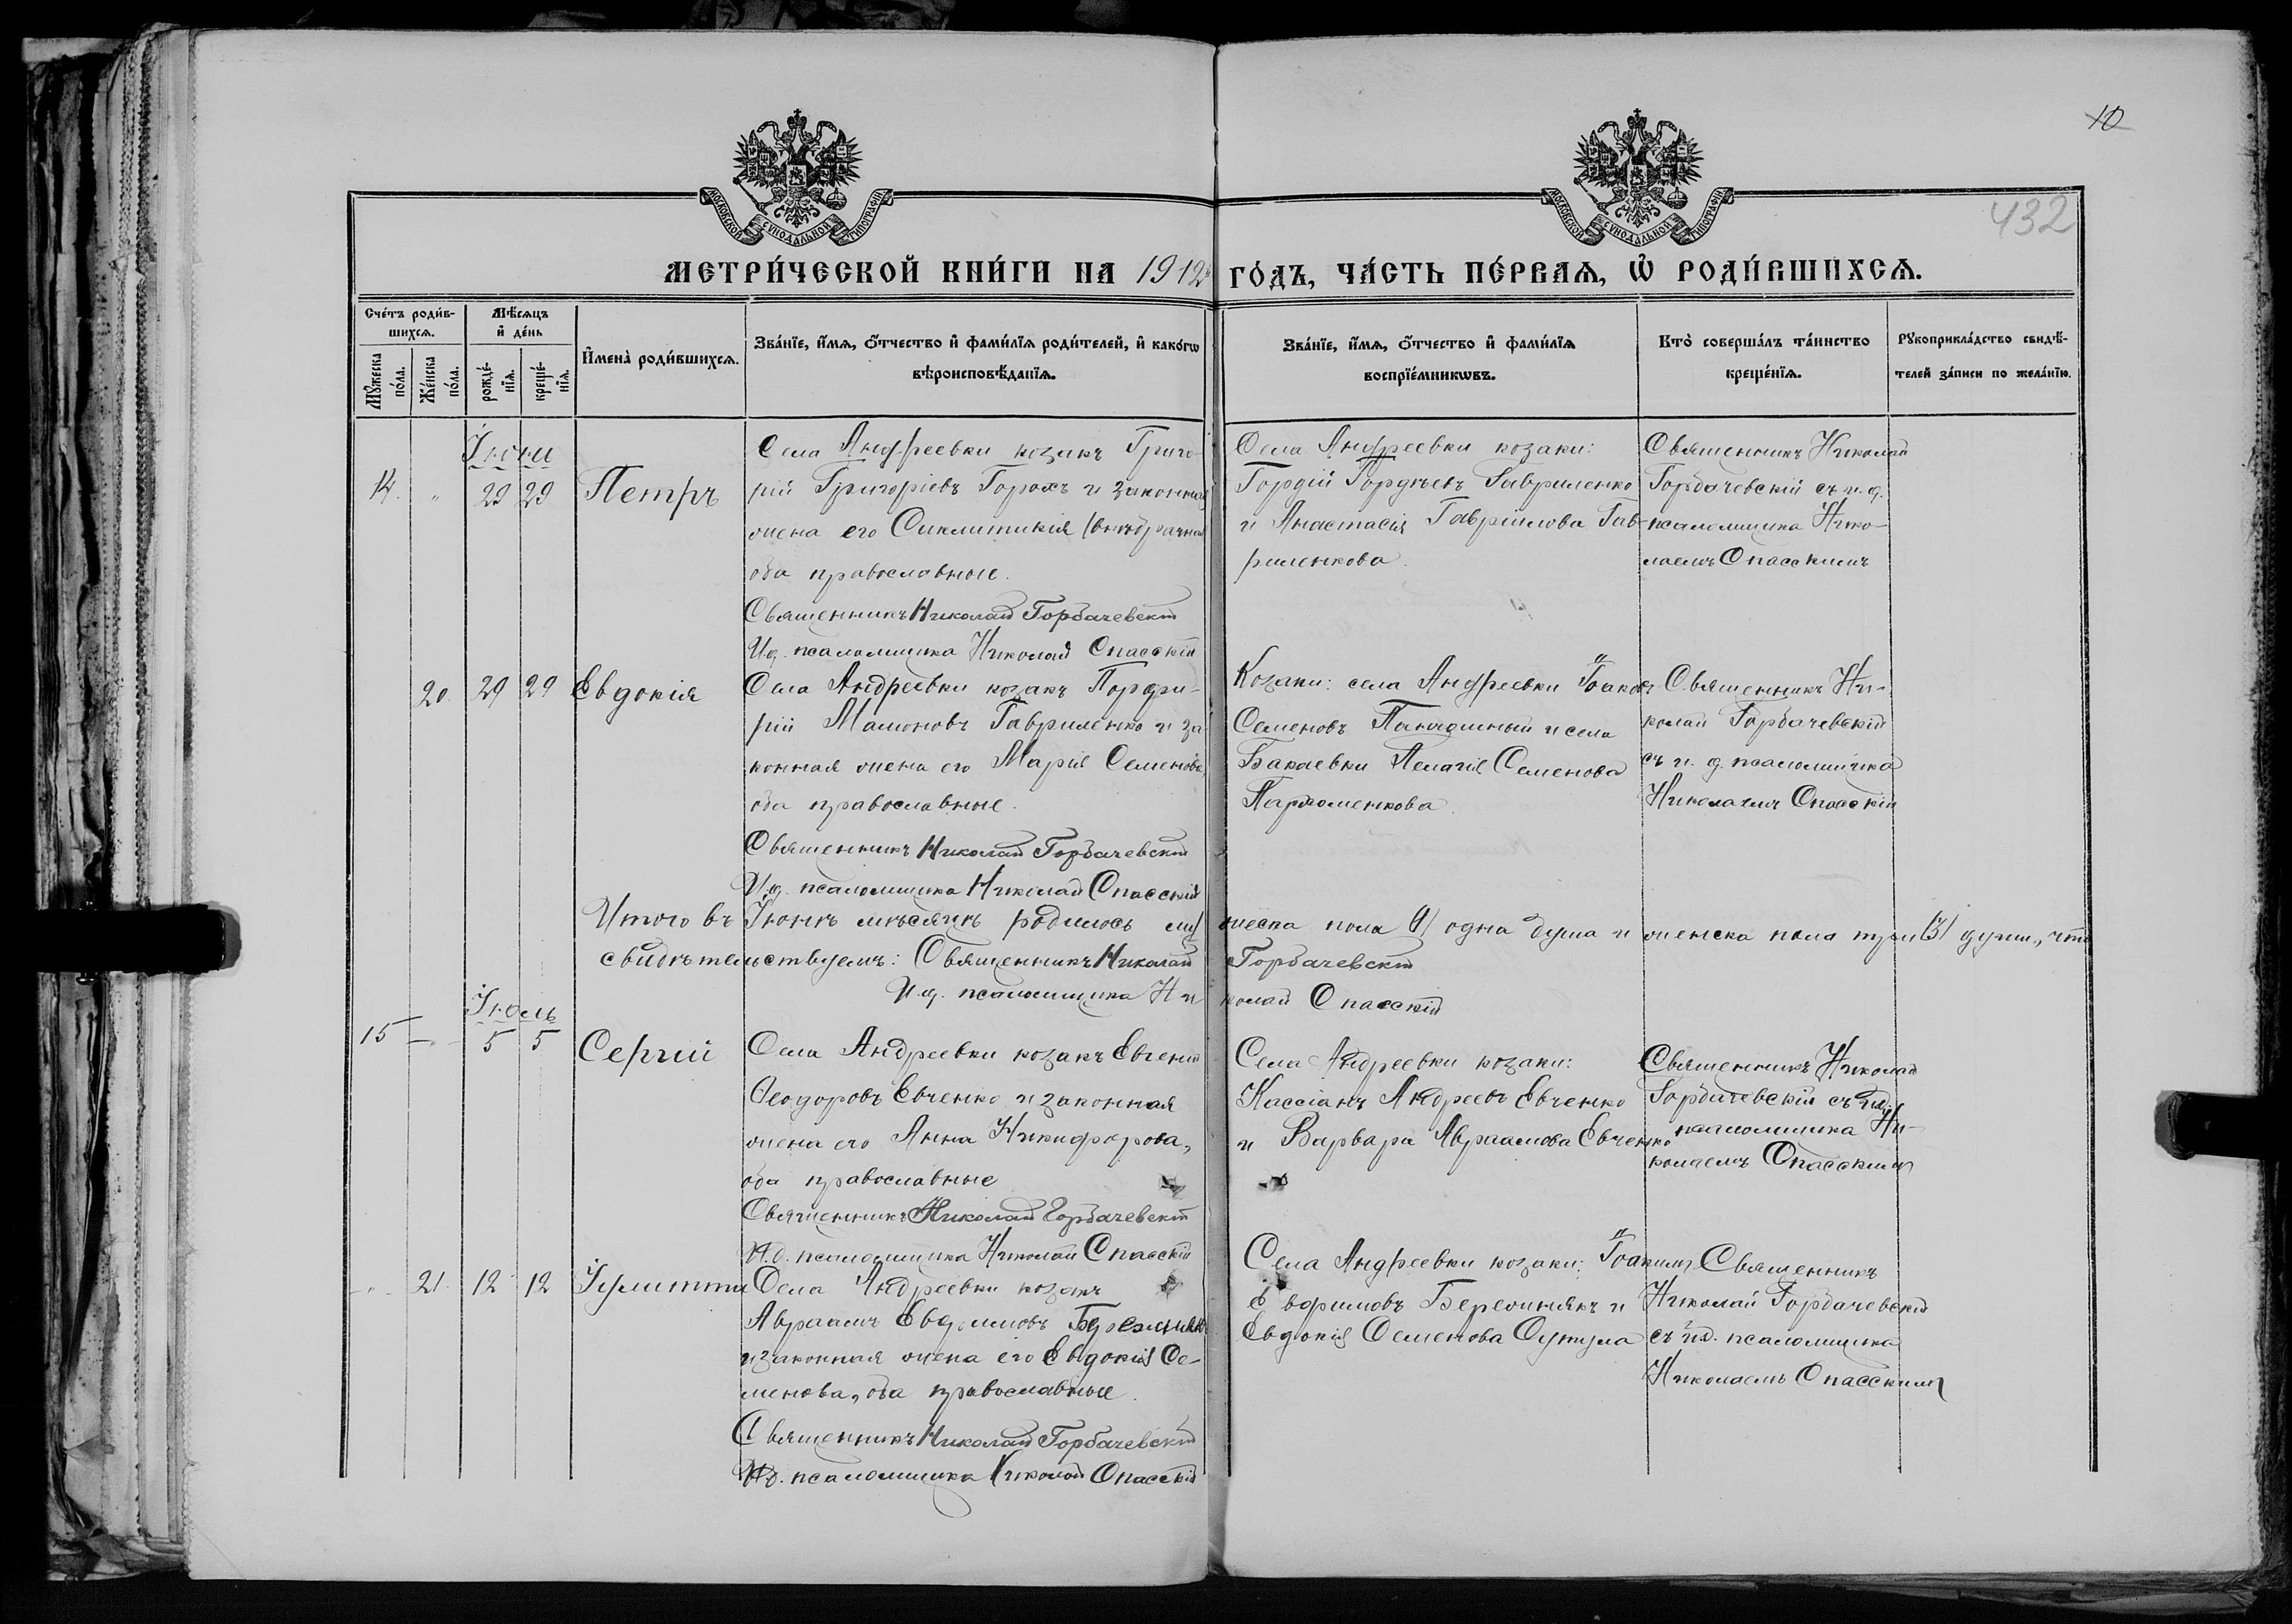 10
432
МОСКОВСКОЙ СѴНОДАЛЬНОЙ ТИПОГРАФІИ
МОСКОВСКОЙ СѴНОДАЛЬНОЙ ТИПОГРАФІИ
МЕТРИ́ЧЕСКОЙ КНИ́ГИ НА 1912й ГО́ДЪ, ЧА́СТЬ ПЕ́РВАѦ, Ѡ҆ РОДИ́ВШИХСѦ.
Сче́тъ роди́в-
шихсѧ.
Мꙋ́жеска по́ла.
Же́нска по́ла.
Мѣ́сѧцъ
и҆ де́нь
рожде́-
нїѧ.
креще́-
нїѧ.
И҆мена̀ роди́вшихсѧ.
Зва́нїе, и҆́мѧ, ѻ҆́тчество и҆ фами́лїѧ роди́телей, и҆ како́гѡ
вѣроисповѣ́данїѧ.
Зва́нїе, и҆́мѧ, ѻ҆́тчество и҆ фами́лїѧ
воспрїе́мникѡвъ.
Кто̀ соверша́лъ та́инство
креще́нїѧ.
Рꙋкоприкла́дство свидѣ́-
телей за́писи по жела́нїю.
Іюни
14. " 29 29 Петръ
Села Андреевки козакъ Григо-
рій Григоріевъ Горохъ и законная
жена его Синклитикія
оба православные.
Священникъ Николай Горбачевскій
И.д. псаломщика Николай Спасскій
Села Андреевки козаки:
Гордій Гордѣевъ Гавриленко
и Анастасія Гавріилова Гав-
риленкова.
Священникъ Николай
Горбачевскій съ и.д.
псаломщика Нико-
лаемъ Спасскимъ
20. 29 29 Евдокія
Села Андреевки козакъ Порфи-
рій Мамоновъ Гавриленко и за
конная жена его Марія Семенова
оба православные.
Священникъ Николай Горбачевскій
И.д. псаломщика Николай Спасскій
Козаки: села Андреевки Іоаковъ
Семеновъ и села
Бакаевки Пелагія Семенова
Пархоменкова.
Священникъ Ни-
колай Горбачевскій
съ и. д. псаломщика
Николаемъ Спасскій
Итого въ Іюнѣ мѣсяцѣ родилось му жеска пола (1) одна душа и женска пола три (3) души, что
свидѣтельствуемъ: Священникъ Николай Горбачевскій
И.д. псаломщика Ни колай Спасскій
Іюль
15 " 5 5 Сергій
Села Андреевки козакъ Евгеній
Ѳеодоровъ Евченко и законная
жена его Анна Никифорова,
оба православные
Священникъ Николай Горбачевскій
И.д. псаломщика Николай Спасскій
Села Андреевки козаки:
Кассіанъ Андреевъ Евченко
и Варвара Авраамова Евченко
Священникъ Николай
Горбачевскій съ и.д.
псаломщика Ни-
колаемъ Спасскимъ
" 21. 12 12 Іулитта
Села Андреевки козакъ
Авраамъ
и законная жена его Евдокія Се-
менова, оба православные.
Священникъ Николай Горбачевскій
И.д. псаломщика Николай Спасскій
Села Андреевки козаки: Іоакимъ
Евфимовъ Бережнякъ и
Евдокія Семенова
Священникъ
Николай Горбачевскій
съ и.д. псаломщика
Николаемъ Спасскимъ